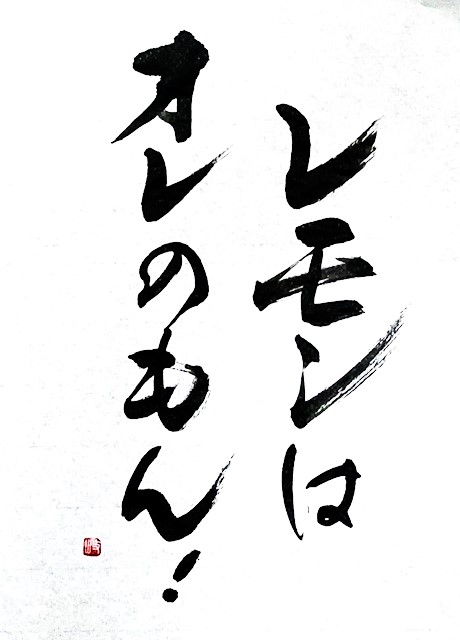 レモンは
オレのもん!